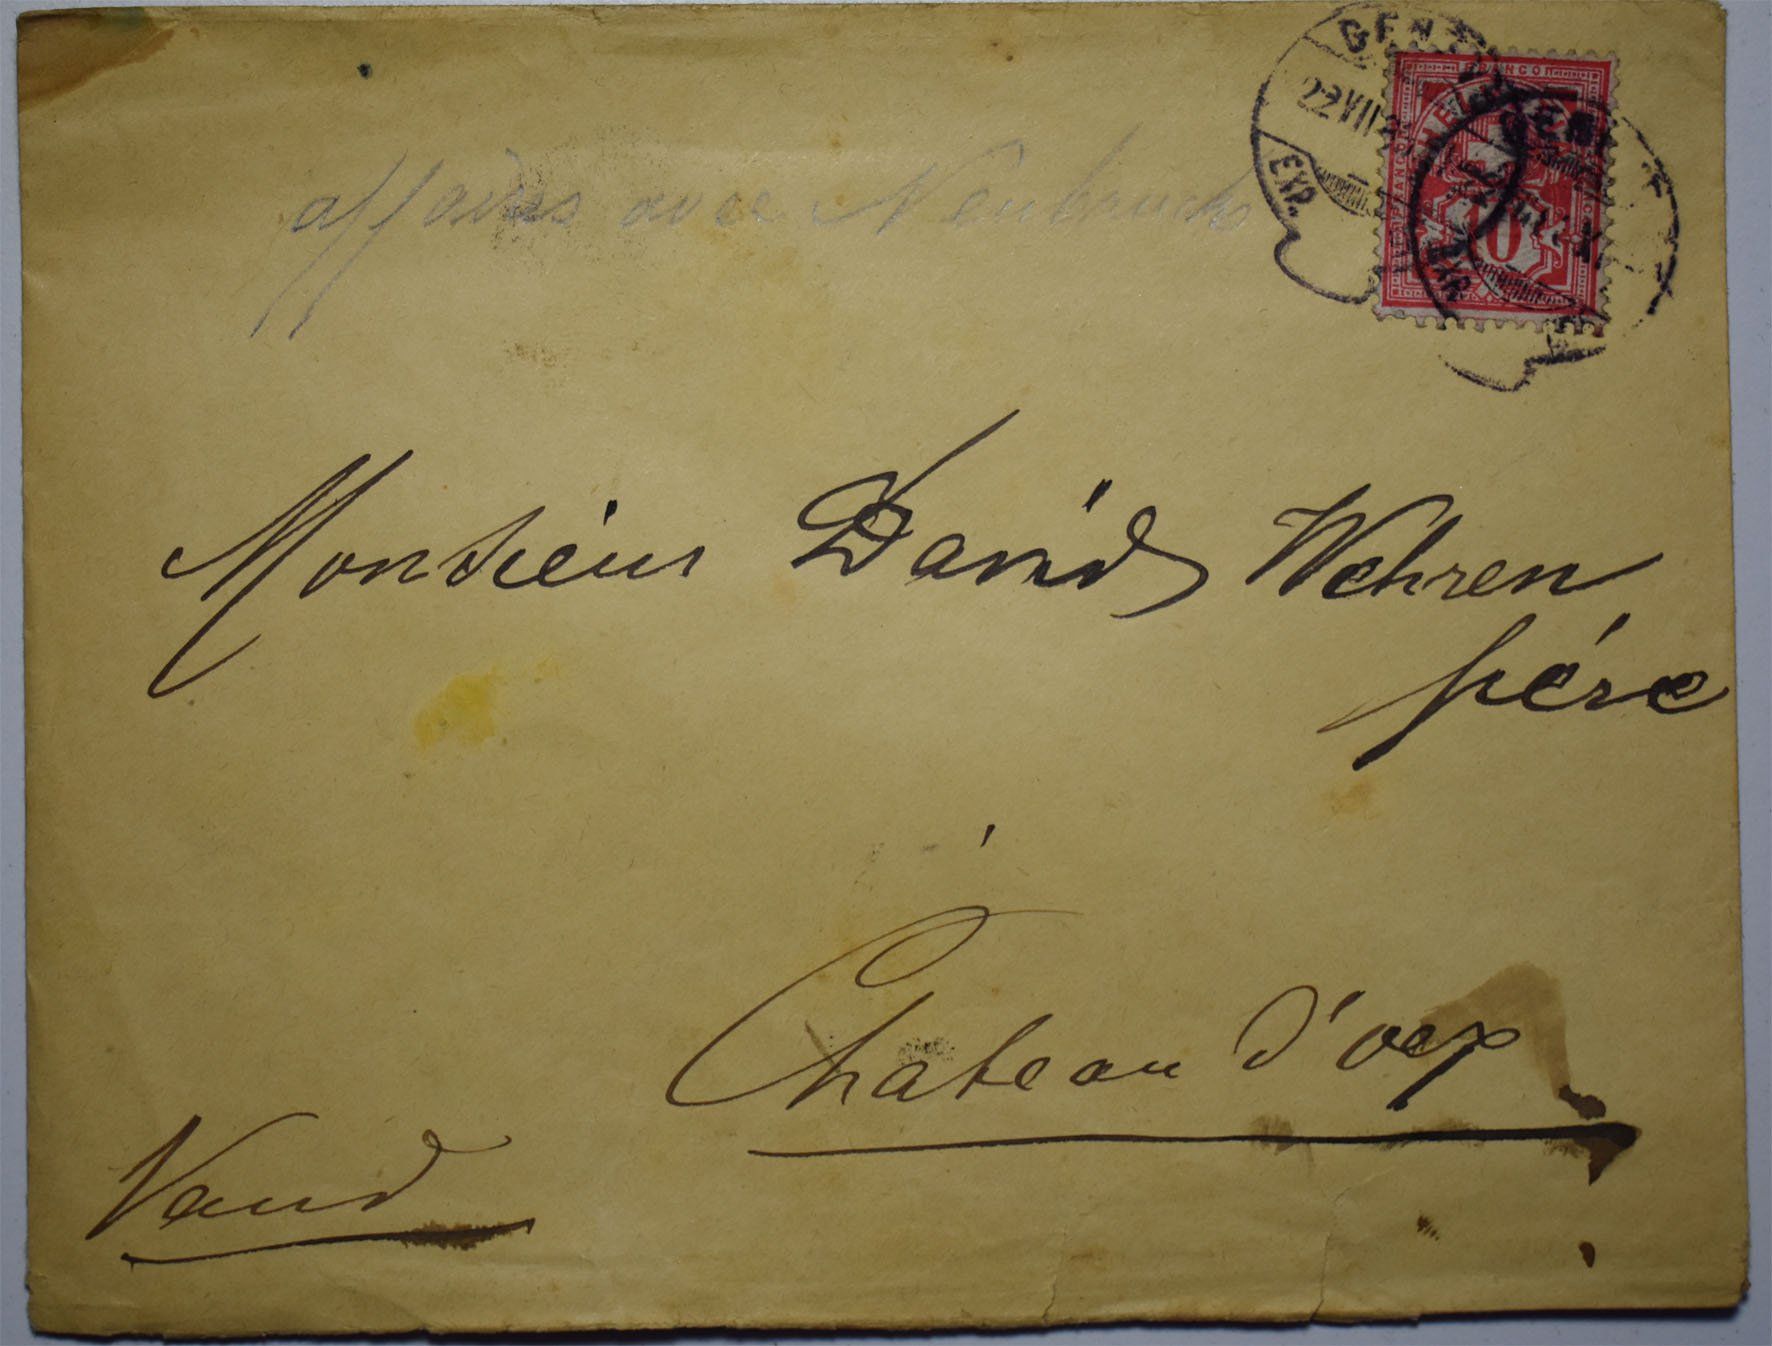 GENÈVE
22 VII
EXP.
FRANCO
10
affaires avec Neubruck
Monsieur David Wehren
père
Château d'oex
Vaud